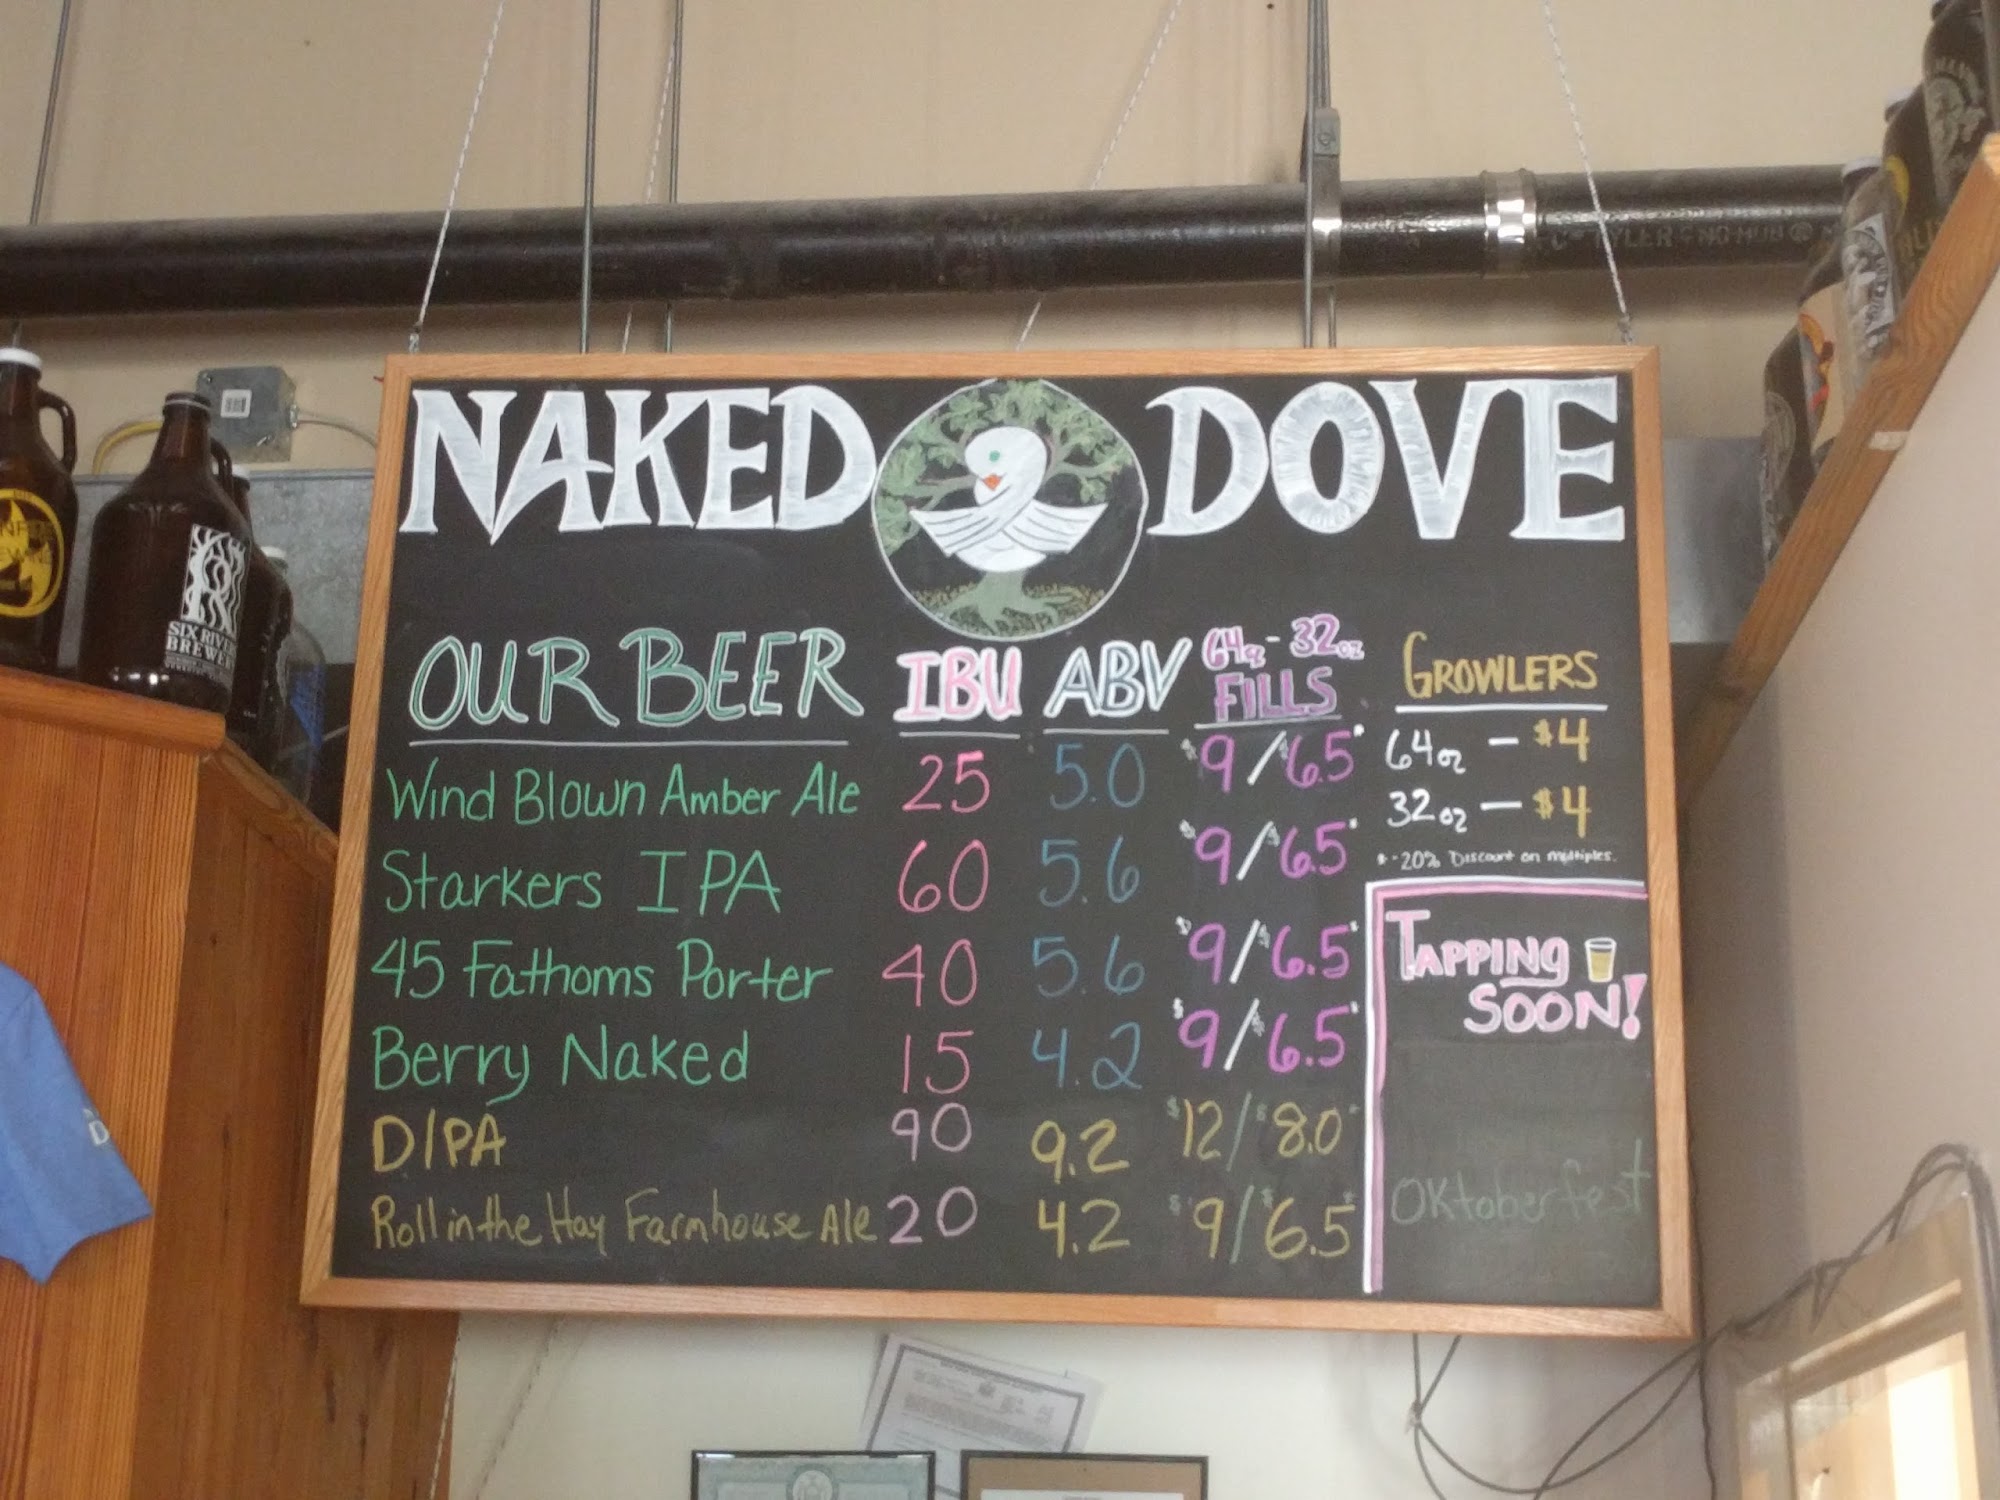 NAKED DOVE
OUR BEER IBU ABV 64oz - 32oz FILLS
Wind Blown Amber Ale 25 5.0 $9/$6.5*
Starkers IPA 60 5.6 $9/$6.5*
45 Fathoms Porter 40 5.6 $9/$6.5*
Berry Naked 15 4.2 $9/$6.5*
DIPA 90 9.2 $12/$8.0*
Roll in the Hay Farmhouse Ale 20 4.2 $9/$6.5*
GROWLERS
64oz - $4
32oz - $4
* -20% Discount on multiples.
TAPPING
SOON!
Oktoberfest
SIX RIVERS
BREWERY
TYLER
NO-HUB